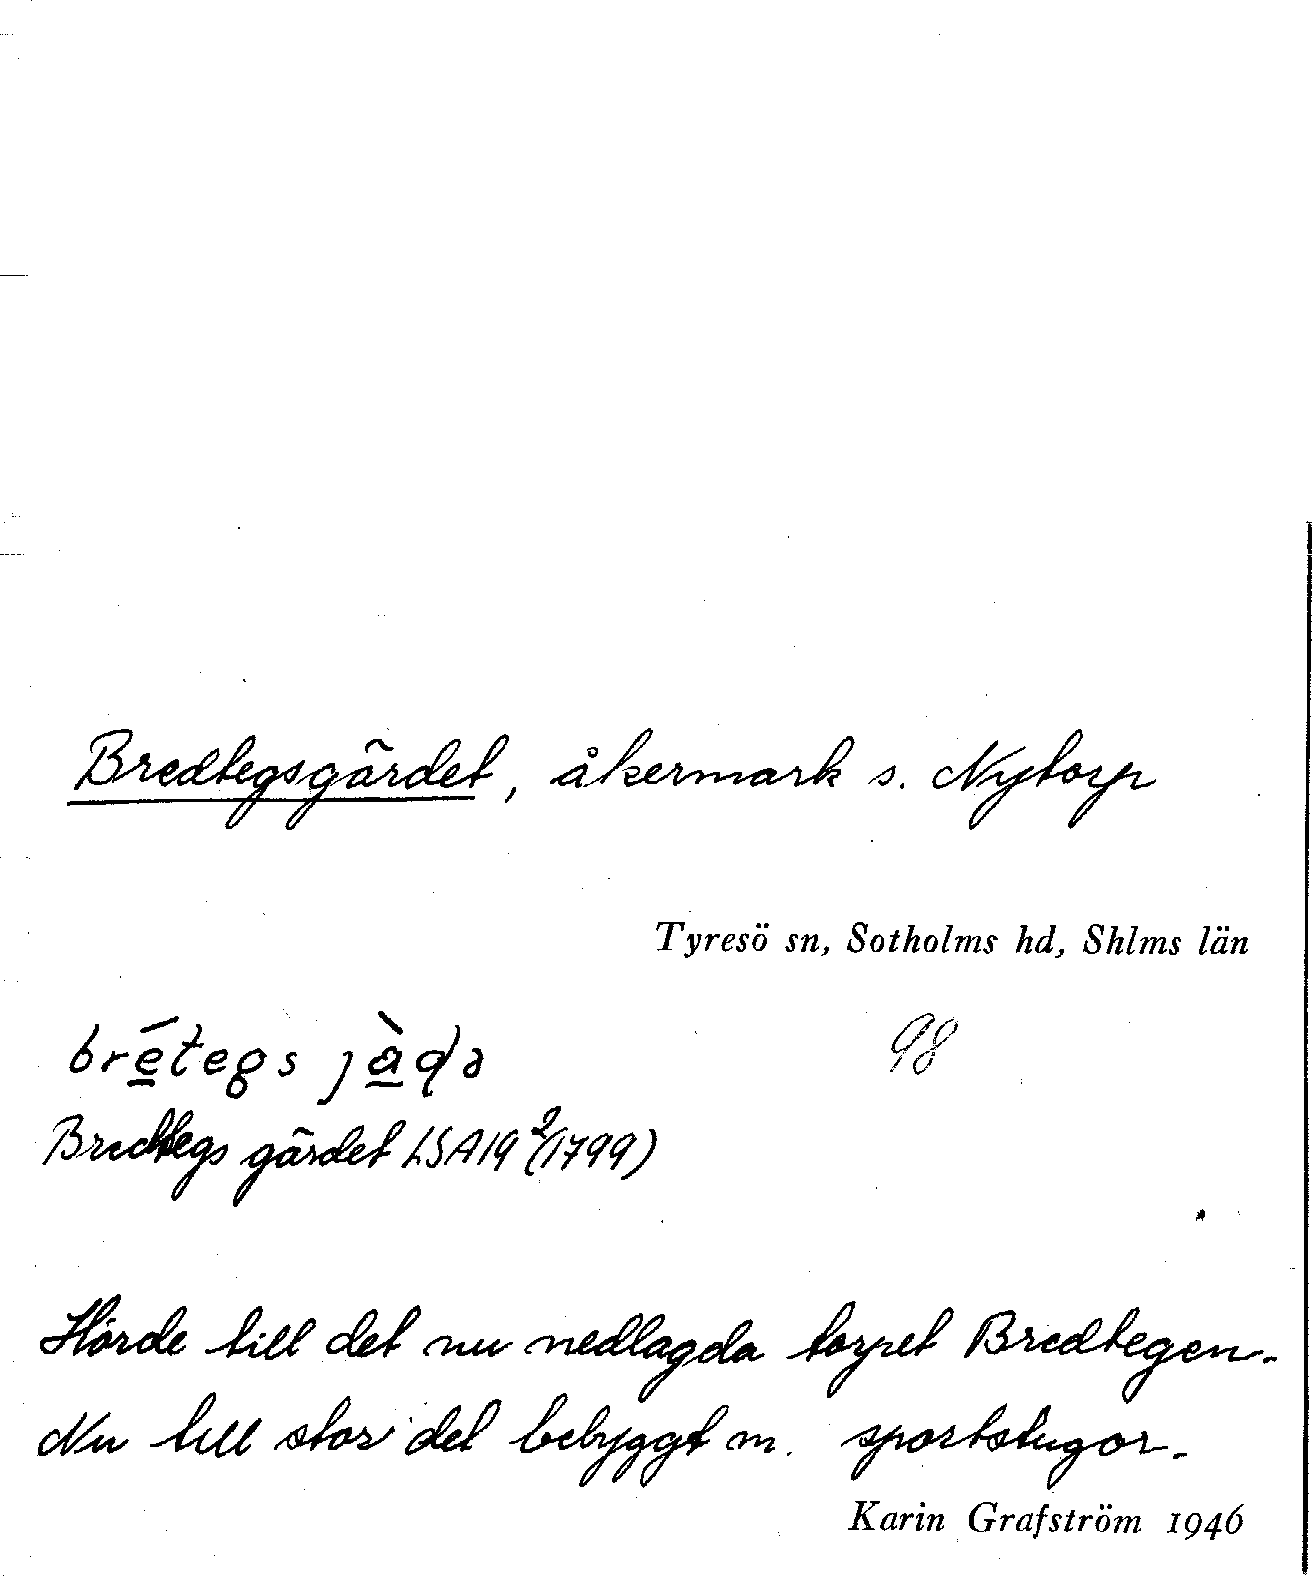 Bredtegsgärdet, åkermark s. Nytorp
Tyresö sn, Sotholms hd, Shlms län
brétegs jàɖə
98
Bredtegs gärdet LSA19²(1799)
Hörde till det nu nedlagda torpet Bredtegen.
Nu till stor del bebyggt m. sportstugor.
Karin Grafström 1946